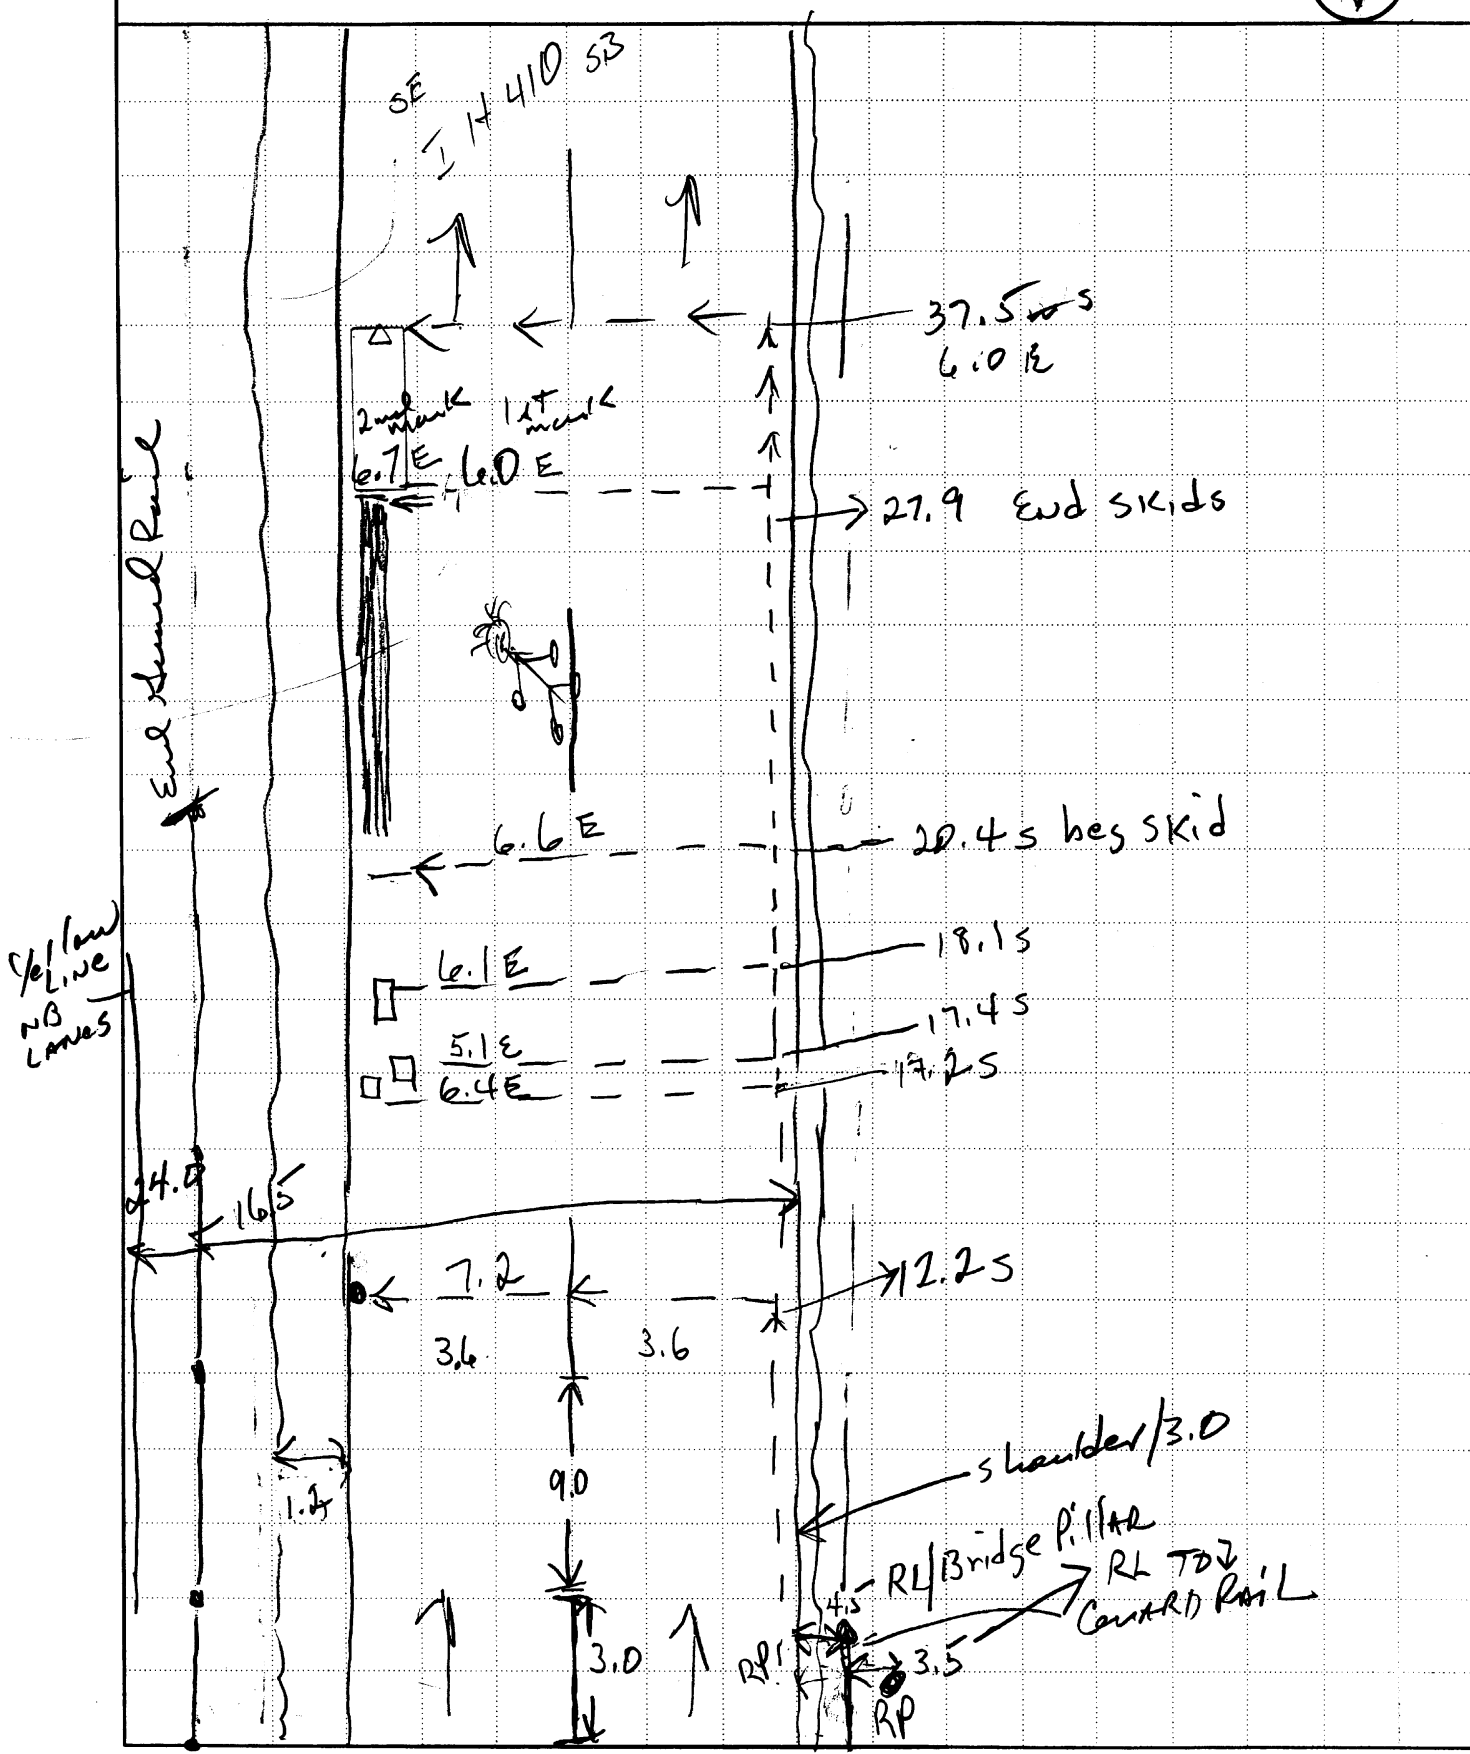 SE
I H 410 SB
37.5 S
6.0 E
2nd mark
1st mark
6.7 E
6.0 E
27.9 End skids
End Guard Rail
6.6 E
20.4 S beg skid
Yellow
LINE
NB
LANES
6.1 E
18.1 S
5.1 E
17.4 S
6.4 E
17.2 S
24.0
16.5
7.2
12.2 S
3.6
3.6
9.0
shoulder/3.0
1.2
RL/Bridge Pillar
RL TO
GUARD RAIL
4.5
3.0
RP1
3.5
RP